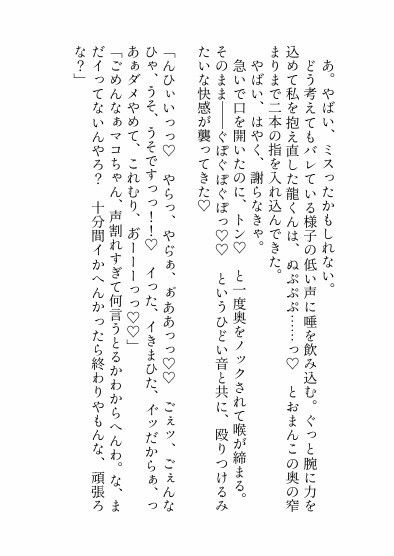 あ。やばい、ミスったかもしれない。
どう考えてもバレている様子の低い声に唾を飲み込む。ぐっと腕に力を
込めて私を抱え直した龍くんは、ぬぷぷぷ……っ♡　とおまんこの奥の窄
まりまで二本の指を入れ込んできた。
やばい、はやく、謝らなきゃ。
急いで口を開いたのに、トン♡　と一度奥をノックされて喉が締まる。
そのまま――ぐぽぐぽぐぽっ♡♡　というひどい音と共に、殴りつけるみ
たいな快感が襲ってきた♡
「んひぃいっっ♡　やらっ、やら゛ぁ、ぁ゛ああっっ♡♡　ごぇッ、ごぇんな
ひゃ、うそ、うそですっっ！！♡　イった、イきまひた、イ゛ッだからぁ、っ
あぁダメやめて、これむり、お゛ーーーっっ♡♡」
「ごめんなぁマコちゃん、声割れすぎて何言うとるかわからへんわ。な、ま
だイってないんやろ？　十分間イかへんかったら終わりやもんな、頑張ろ
な？」